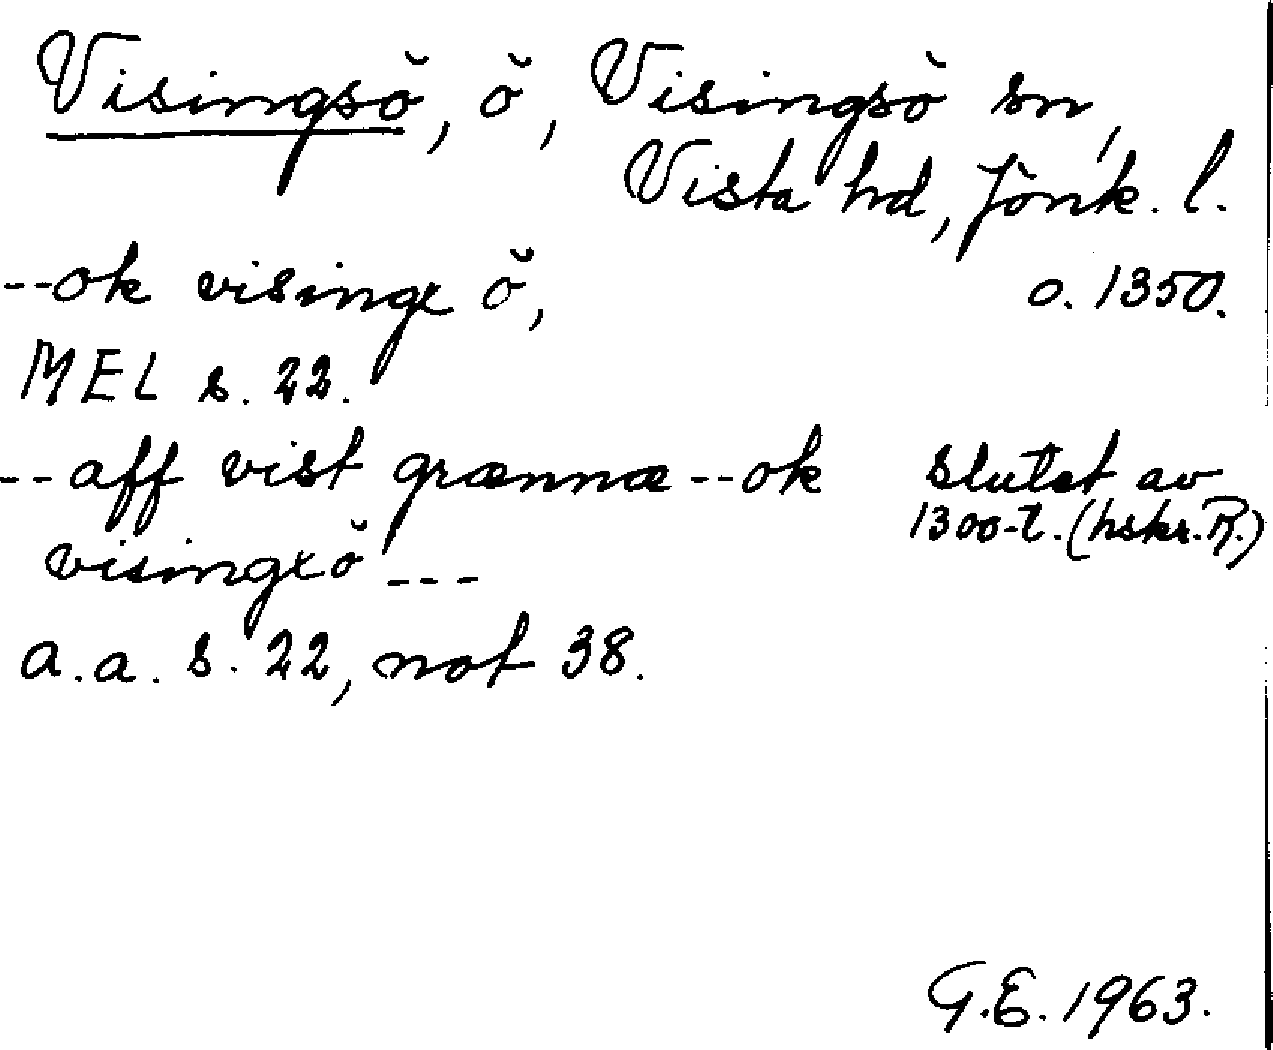 Visingsö, ö, Visingsö sn,
Vista hd, Jönk. l.
--ok visinge ö, o. 1350.
MEL s. 22.
--aff vist grænnæ--ok slutet av
1300-t. (hskr. R.)
visingxö ---
a.a. s. 22, not 38.
G.E. 1963.